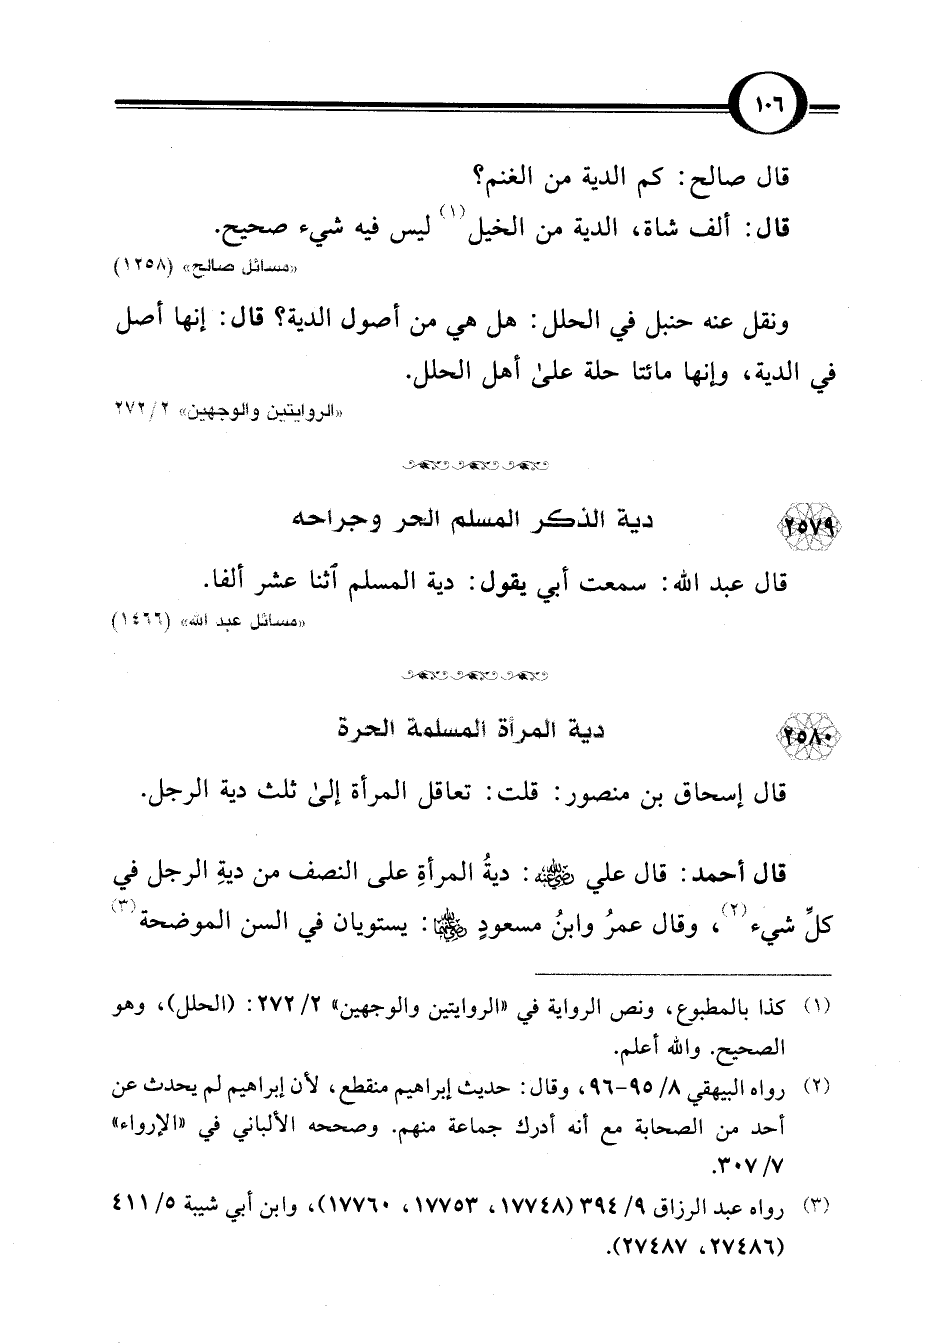 ١٠٦
قال صالح: كم الدية من الغنم؟
قال: ألف شاة، الدية من الخيل(١) ليس فيه شيء صحيح.
«مسائل صالح» (١٢٥٨)
ونقل عنه حنبل في الحلل: هل هي من أصول الدية؟ قال: إنها أصل
في الدية، وإنها مائتا حلة علىٰ أهل الحلل.
«الروايتين والوجهين» ٢/ ٢٧٢
٢٥٧٩ دية الذكر المسلم الحر وجراحه
قال عبد الله: سمعت أبي يقول: دية المسلم ٱثنا عشر ألفا.
«مسائل عبد الله» (١٤٦٦)
٢٥٨٠ دية المرأة المسلمة الحرة
قال إسحاق بن منصور: قلت: تعاقل المرأة إلىٰ ثلث دية الرجل.
قال أحمد: قال علي رضي الله عنه: ديةُ المرأةِ على النصف من ديةِ الرجل في
كلِّ شيء(٢)، وقال عمرُ وابنُ مسعودٍ رضي الله عنهما: يستويان في السن الموضحة(٣)
(١) كذا بالمطبوع، ونص الرواية في «الروايتين والوجهين» ٢/ ٢٧٢: (الحلل)، وهو
الصحيح. والله أعلم.
(٢) رواه البيهقي ٨/ ٩٥-٩٦، وقال: حديث إبراهيم منقطع، لأن إبراهيم لم يحدث عن
أحد من الصحابة مع أنه أدرك جماعة منهم. وصححه الألباني في «الإرواء»
٧/ ٣٠٧.
(٣) رواه عبد الرزاق ٩/ ٣٩٤ (١٧٧٤٨، ١٧٧٥٣، ١٧٧٦٠)، وابن أبي شيبة ٥/ ٤١١
(٢٧٤٨٦، ٢٧٤٨٧).